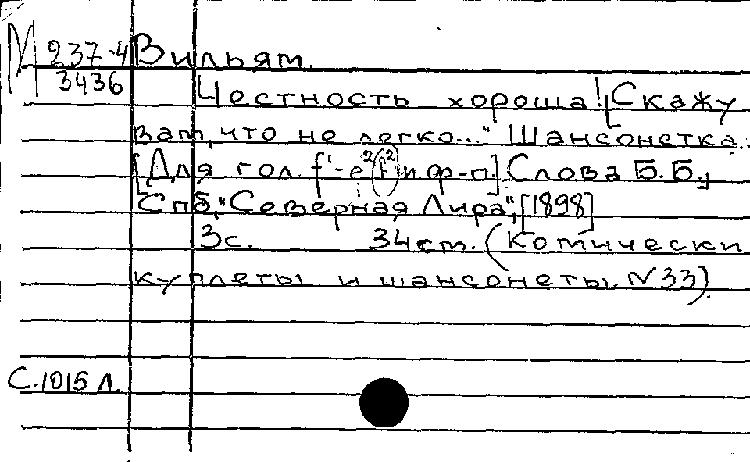 М 237-4 Вильям.
3436 Честность хороша! [Скажу
вам, что не легко..." Шансонетка.
[Для гол. f'-e²(f²) и ф-п.] Слова Б.Б.,
Спб, "Северная Лира", [1898]
3с. 34 см. (Комически
куплеты и шансонеты, N 33).
С.1015 л.